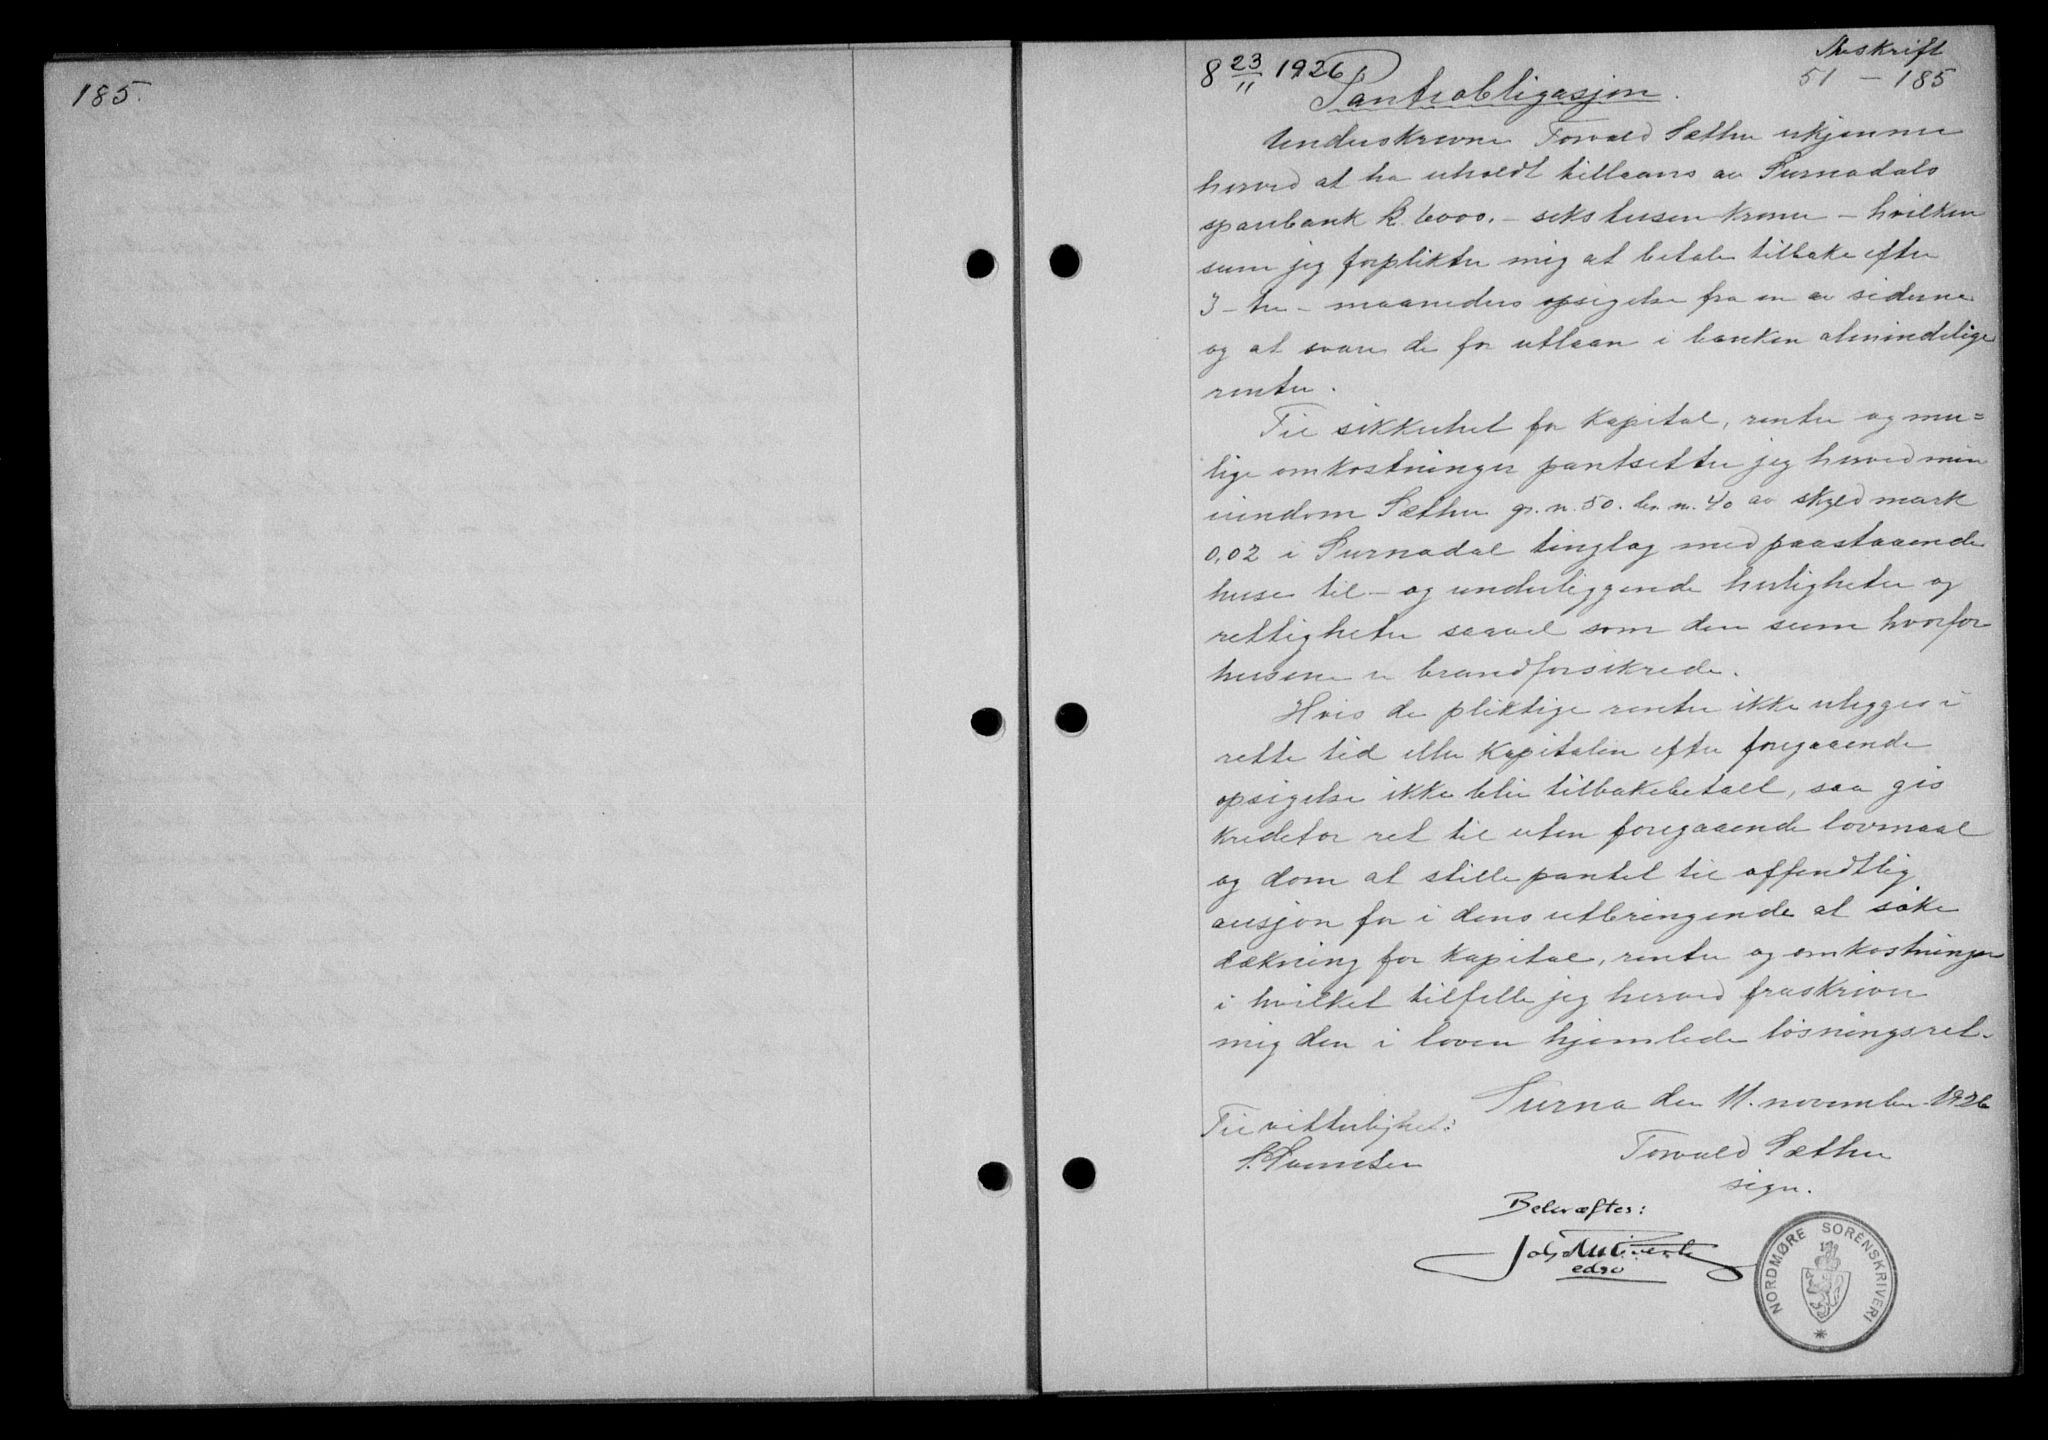 185.
Avskrift
8 23/11 1926
51 - 185
Pantobligasjon.
Underskrevne Torvald Sæther erkjenner
herved at ha erholdt tillaans av Surnadals
sparebank kr. 6000.- seks tusen kroner - hvilken
sum jeg forplikter mig at betale tilbake efter
3 - tre - maaneders opsigelse fra en av siderne
og at svare de for utlaan i banken almindelige
renter.
Til sikkerhet for kapital, renter og mu=
lige omkostninger pantsetter jeg herved min
eiendom Sæther gr. n. 50. br. n. 40 av skyld mark
0,02 i Surnadal tinglag med paastaaende
huse til- og underliggende herligheter og
rettigheter saavel som den sum hvorfor
husene er brandforsikrede.
Hvis de pliktige renter ikke erlegges i
rette tid eller kapitalen efter foregaaende
opsigelse ikke blir tilbakebetalt, saa gis
kreditor ret til uten foregaaende lovmaal
og dom at stille pantet til offendtlig
ausjon for i dens utbringende at søke
dækning for kapital, renter og omkostninger
i hvilket tilfelle jeg herved fraskriver
mig den i loven hjemlede løsningsret.
Surna den 11. november 1926
Til vitterlighet:
Torvald Sæther
sign.
Bekræftes:
edsv
NORDMØRE SORENSKRIVERI